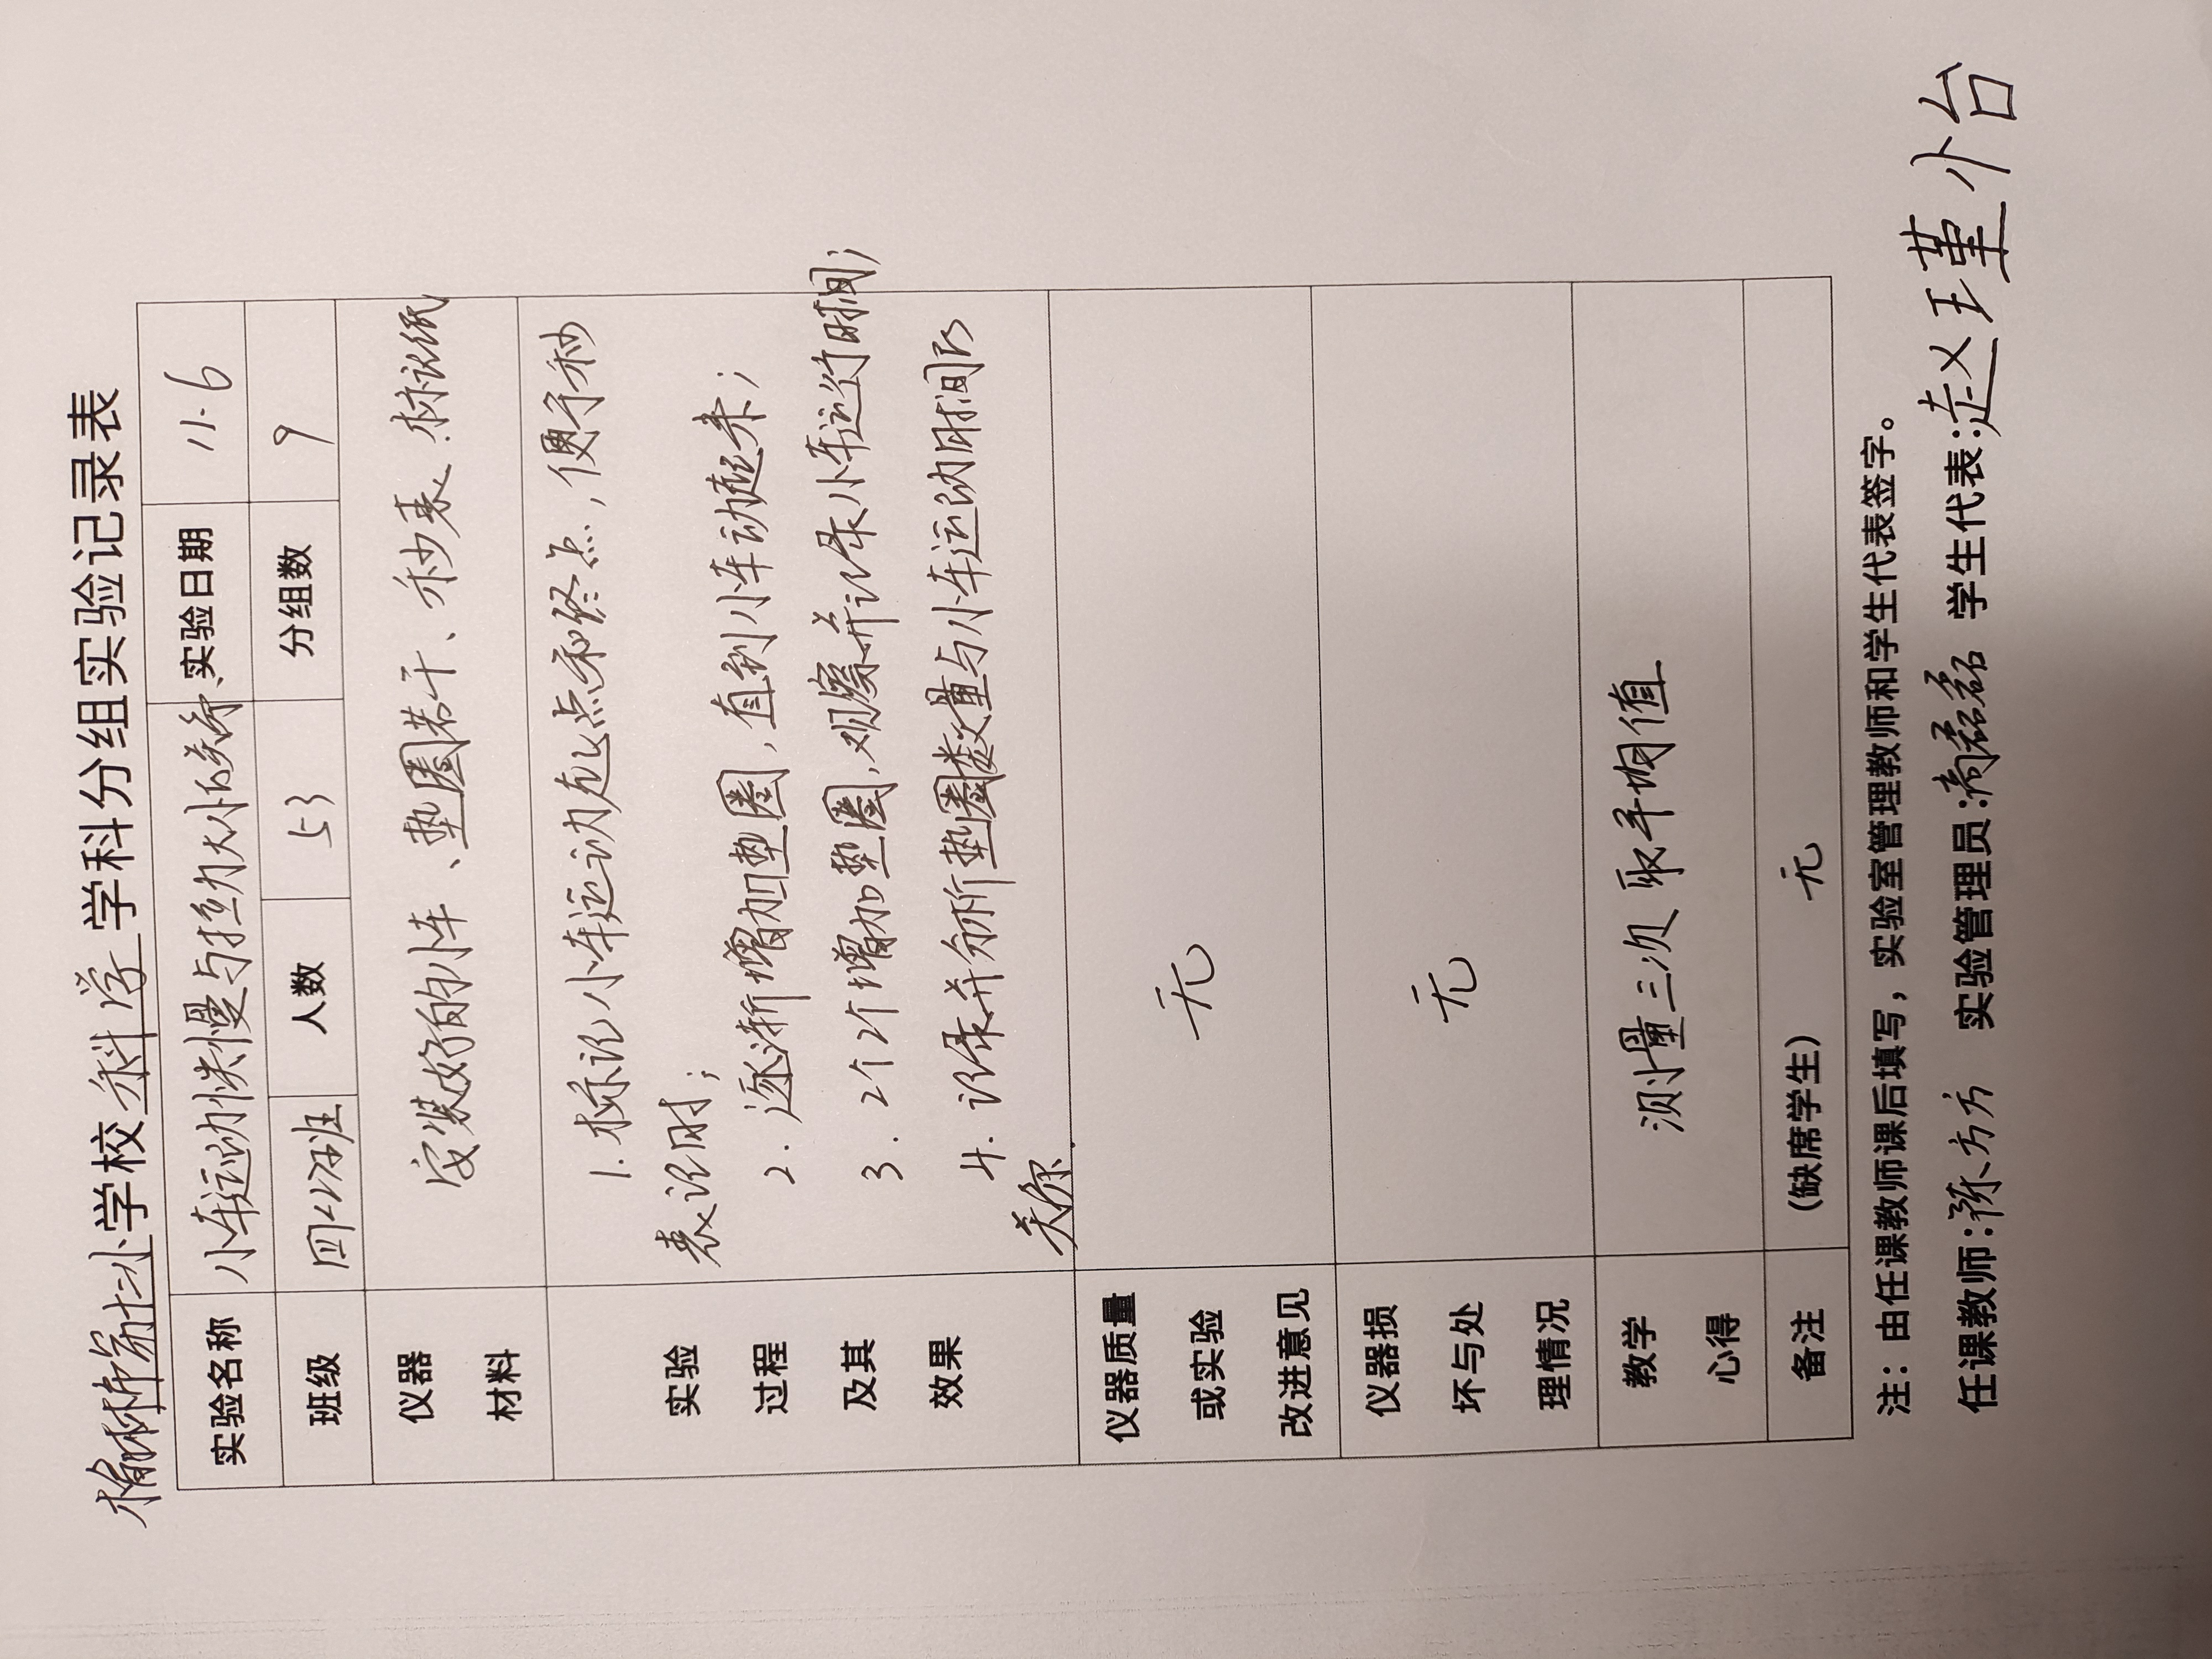 榆林市第十二小学校 科学 学科分组实验记录表
实验名称 小车运动快慢与拉力大小的关系 实验日期 11.6
班级 四(2)班 人数 53 分组数 9
仪器材料 安装好的小车、垫圈若干、秒表、标记纸
实验过程及其效果
1. 标记小车运动起点和终点,便于秒
表记时;
2. 逐渐增加垫圈,直到小车动起来;
3. 2个2个增加垫圈,观察并记录小车运行时间;
4. 记录并分析垫圈数量与小车运动时间的
关系
仪器质量或实验改进意见 无
仪器损坏与处理情况 无
教学心得 测量三次取平均值
备注 (缺席学生) 无
注:由任课教师课后填写,实验室管理教师和学生代表签字。
任课教师:陈方方 实验管理员:磊磊 学生代表:赵瑾怡